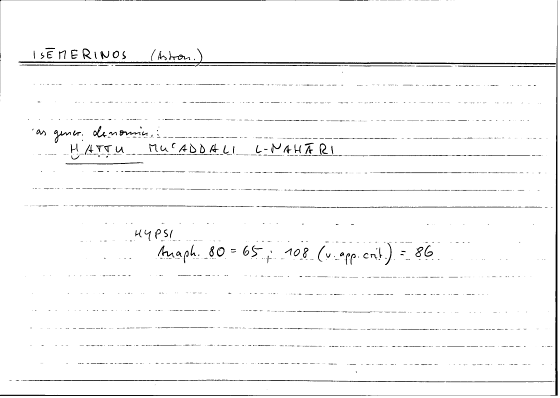 ISĒMERINOS (Astron.)
as gener. denomin.:
ḪAṬṬU MUʿADDALI L-NAHĀRI
HYPSI
Anaph. 80 = 65; 108 (v. app. crit.) = 86